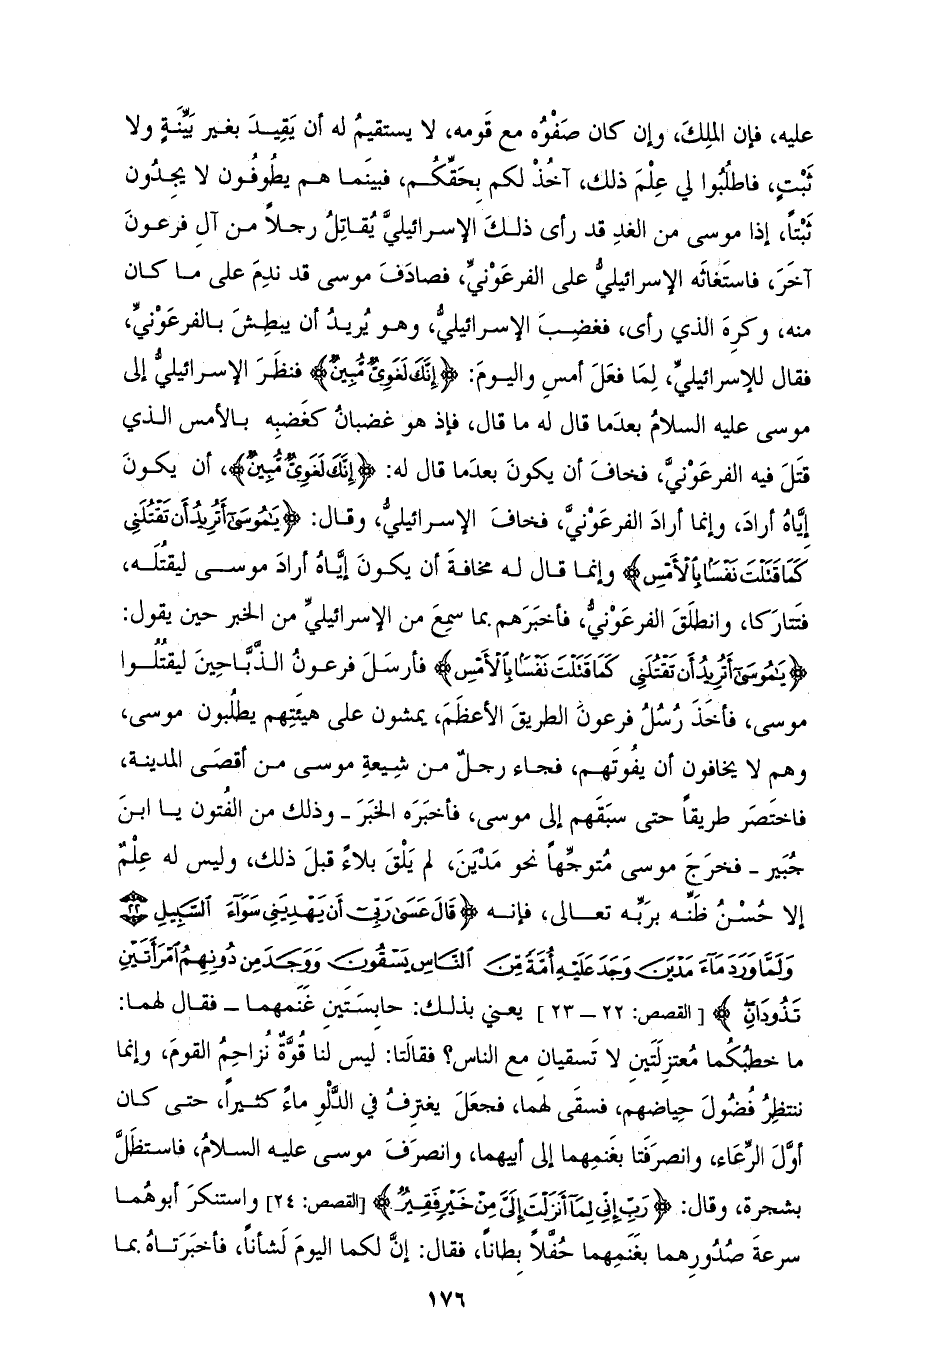 عليه، فإن الملِكَ، وإن كان صَفْوُه مع قَومه، لا يستقيمُ له أن يَقِيدَ بغير بَيِّنَةٍ ولا
ثَبْتٍ، فاطلُبُوا لي عِلْمَ ذلك، آخُذْ لكم بِحَقِّكُم، فبينَما هم يطُوفُون لا يجِدُون
ثَبْتاً، إذا موسى من الغدِ قد رأى ذلكَ الإسرائيليَّ يُقاتِلُ رجلاً من آلِ فرعونَ
آخَرَ، فاستَغاثَه الإسرائيليُّ على الفرعَوْنيِّ، فصادَفَ موسى قد ندِمَ على ما كان
منه، وكرِهَ الذي رأى، فغضِبَ الإسرائيليُّ، وهو يُريدُ أن يبطِشَ بالفرعَوْنيِّ،
فقال للإسرائيليِّ، لِمَا فعَلَ أمسِ واليومَ: ﴿إِنَّكَ لَغَوِيٌّ مُّبِينٌ﴾ فنظَرَ الإسرائيليُّ إلى
موسى عليه السلامُ بعدَما قال له ما قال، فإذ هو غضبانُ كغَضبِه بالأمس الذي
قتَلَ فيه الفرعَوْنيَّ، فخافَ أن يكونَ بعدَما قال له: ﴿إِنَّكَ لَغَوِيٌّ مُّبِينٌ﴾، أن يكونَ
إيَّاهُ أرادَ، وإنما أرادَ الفرعَوْنيَّ، فخافَ الإسرائيليُّ، وقال: ﴿يَٰمُوسَىٰٓ أَتُرِيدُ أَن تَقْتُلَنِى
كَمَا قَتَلْتَ نَفْسًۢا بِٱلْأَمْسِ﴾ وإنما قال له مخافةَ أن يكونَ إيَّاهُ أرادَ موسى ليقتُلَه،
فتَتارَكا، وانطلَقَ الفرعَوْنيُّ، فأخبَرَهم بما سمِعَ من الإسرائيليِّ من الخبر حين يقول:
﴿يَٰمُوسَىٰٓ أَتُرِيدُ أَن تَقْتُلَنِى كَمَا قَتَلْتَ نَفْسًۢا بِٱلْأَمْسِ﴾ فأرسَلَ فرعونُ الذَّبَّاحِينَ ليقتُلُوا
موسى، فأخَذَ رُسُلُ فرعونَ الطريقَ الأعظَمَ، يمشون على هيئتِهم يطلُبون موسى،
وهم لا يخافون أن يفُوتَهم، فجاء رجلٌ من شِيعةِ موسى من أقصَى المدينة،
فاختَصَر طريقاً حتى سبَقَهم إلى موسى، فأخبَرَه الخبَرَ ـ وذلك من الفُتون يا ابنَ
جُبَير ـ فخرَجَ موسى مُتوجِّهاً نحو مَدْيَنَ، لم يَلْقَ بلاءً قبلَ ذلك، وليس له عِلْمٌ
إلا حُسْنُ ظنِّه بربِّه تعالى، فإنه ﴿قَالَ عَسَىٰ رَبِّىٓ أَن يَهْدِيَنِى سَوَآءَ ٱلسَّبِيلِ ۝٢٢
وَلَمَّا وَرَدَ مَآءَ مَدْيَنَ وَجَدَ عَلَيْهِ أُمَّةً مِّنَ ٱلنَّاسِ يَسْقُونَ وَوَجَدَ مِن دُونِهِمُ ٱمْرَأَتَيْنِ
تَذُودَانِ﴾ [ القصص: ٢٢ ــ ٢٣ ] يعني بذلك: حابِسَتَينِ غَنَمهما ـ فقال لهما:
ما خطبُكُما مُعتزِلَتَينِ لا تَسقيانِ مع الناس؟ فقالَتا: ليس لنا قُوَّةٌ نُزاحِمُ القومَ، وإنما
ننتظِرُ فُضُولَ حِياضِهم، فسقَى لهما، فجعَلَ يغترِفُ في الدَّلْوِ ماءً كثيراً، حتى كان
أوَّلَ الرِّعَاء، وانصرَفَتا بغَنمِهما إلى أبيهما، وانصرَفَ موسى عليه السلامُ، فاستظَلَّ
بشجرة، وقال: ﴿رَبِّ إِنِّى لِمَآ أَنزَلْتَ إِلَىَّ مِنْ خَيْرٍ فَقِيرٌ﴾ [القصص: ٢٤] واستنكَرَ أبوهُما
سرعةَ صُدُورِهما بغَنَمِهما حُفَّلاً بِطاناً، فقال: إنَّ لكما اليومَ لَشأناً، فأخبَرَتاهُ بما
١٧٦